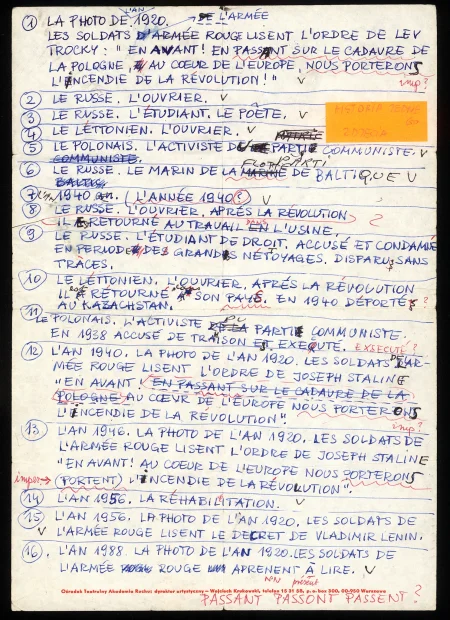 L'AN
① LA PHOTO DE 1920. DE L'ARMÉE
LES SOLDATS D'ARMÉE ROUGE LISENT L'ORDRE DE LEV
TROCKY: "EN AVANT! EN PASSANT SUR LE CADAVRE DE
LA POLOGNE, AU CŒUR DE L'EUROPE, NOUS PORTERONS
L'INCENDIE DE LA RÉVOLUTION!" V imp?
② LE RUSSE. L'OUVRIER. V
③ LE RUSSE. L'ÉTUDIANT. LE POÈTE. V
④ LE LÉTTONIEN. L'OUVRIER. V
⑤ LE POLONAIS. L'ACTIVISTE DU PARTI COMMUNISTE. V
COMMUNISTE.
⑥ LE RUSSE. LE MARIN DE LA MARINE DE BALTIQUE V
BALTIS
⑦ L'an 1940 an. (L'ANNÉE 1940?) V
⑧ LE RUSSE. L'OUVRIER. APRÉS LA RÉVOLUTION
IL EST RETOURNÉ AU TRAVAIL DANS L'USINE. ?
⑨ LE RUSSE. L'ÉTUDIANT DE DROIT. ACCUSÉ ET CONDAMNÉ
EN PERIODE DES GRANDS NÉTOYAGES. DISPARU SANS
TRÀCES.
⑩ LE LÉTTONIEN. L'OUVRIER. APRÉS LA RÉVOLUTION
IL A RÉTOURNÉ À SON PAYS. EN 1940 DÉPORTÉ ?
AU KAZACHSTAN.
⑪ LE POLONAIS. L'ACTIVISTE DU PARTI COMMUNISTE.
EN 1938 ACCUSÉ DE TRAISON ET EXEQUTÉ. EXSECUTÉ?
⑫ L'AN 1940. LA PHOTO DE L'AN 1920. LES SOLDATS DE L'AR-
MÉE ROUGE LISENT L'ORDRE DE JOSEPH STALINE
"EN AVANT! EN PASSANT SUR LE CADAVRE DE LA
POLOGNE, AU CŒUR DE L'EUROPE NOUS PORTERONS
L'INCENDIE DE LA RÉVOLUTION". imp?
⑬ L'AN 1946. LA PHOTO DE L'AN 1920. LES SOLDATS DE
L'ARMÉE ROUGE LISENT L'ORDRE DE JOSEPH STALINE
"EN AVANT! AU COEUR DE L'EUROPE NOUS PORTERONS
(PORTENT) L'INCENDIE DE LA RÉVOLUTION".
⑭ L'AN 1956. LA RÉHABILITATION. V
⑮ L'AN 1956. LA PHOTO DE L'AN 1920. LES SOLDATS DE
V L'ARMÉE ROUGE LISENT LE DECRET DE VLADIMIR LENIN.
⑯ L'AN 1988 LA PHOTO DE L'AN 1920. LES SOLDATS DE
L'ARMÉE ROUGE APRENENT À LIRE. V
NN présent
Ośrodek Teatralny Akademia Ruchu: dyrektor artystyczny — Wojciech Krukowski, telefon 15 31 38, p. o. box 300, 00-950 Warszawa
PASSANT PASSONT PASSENT?